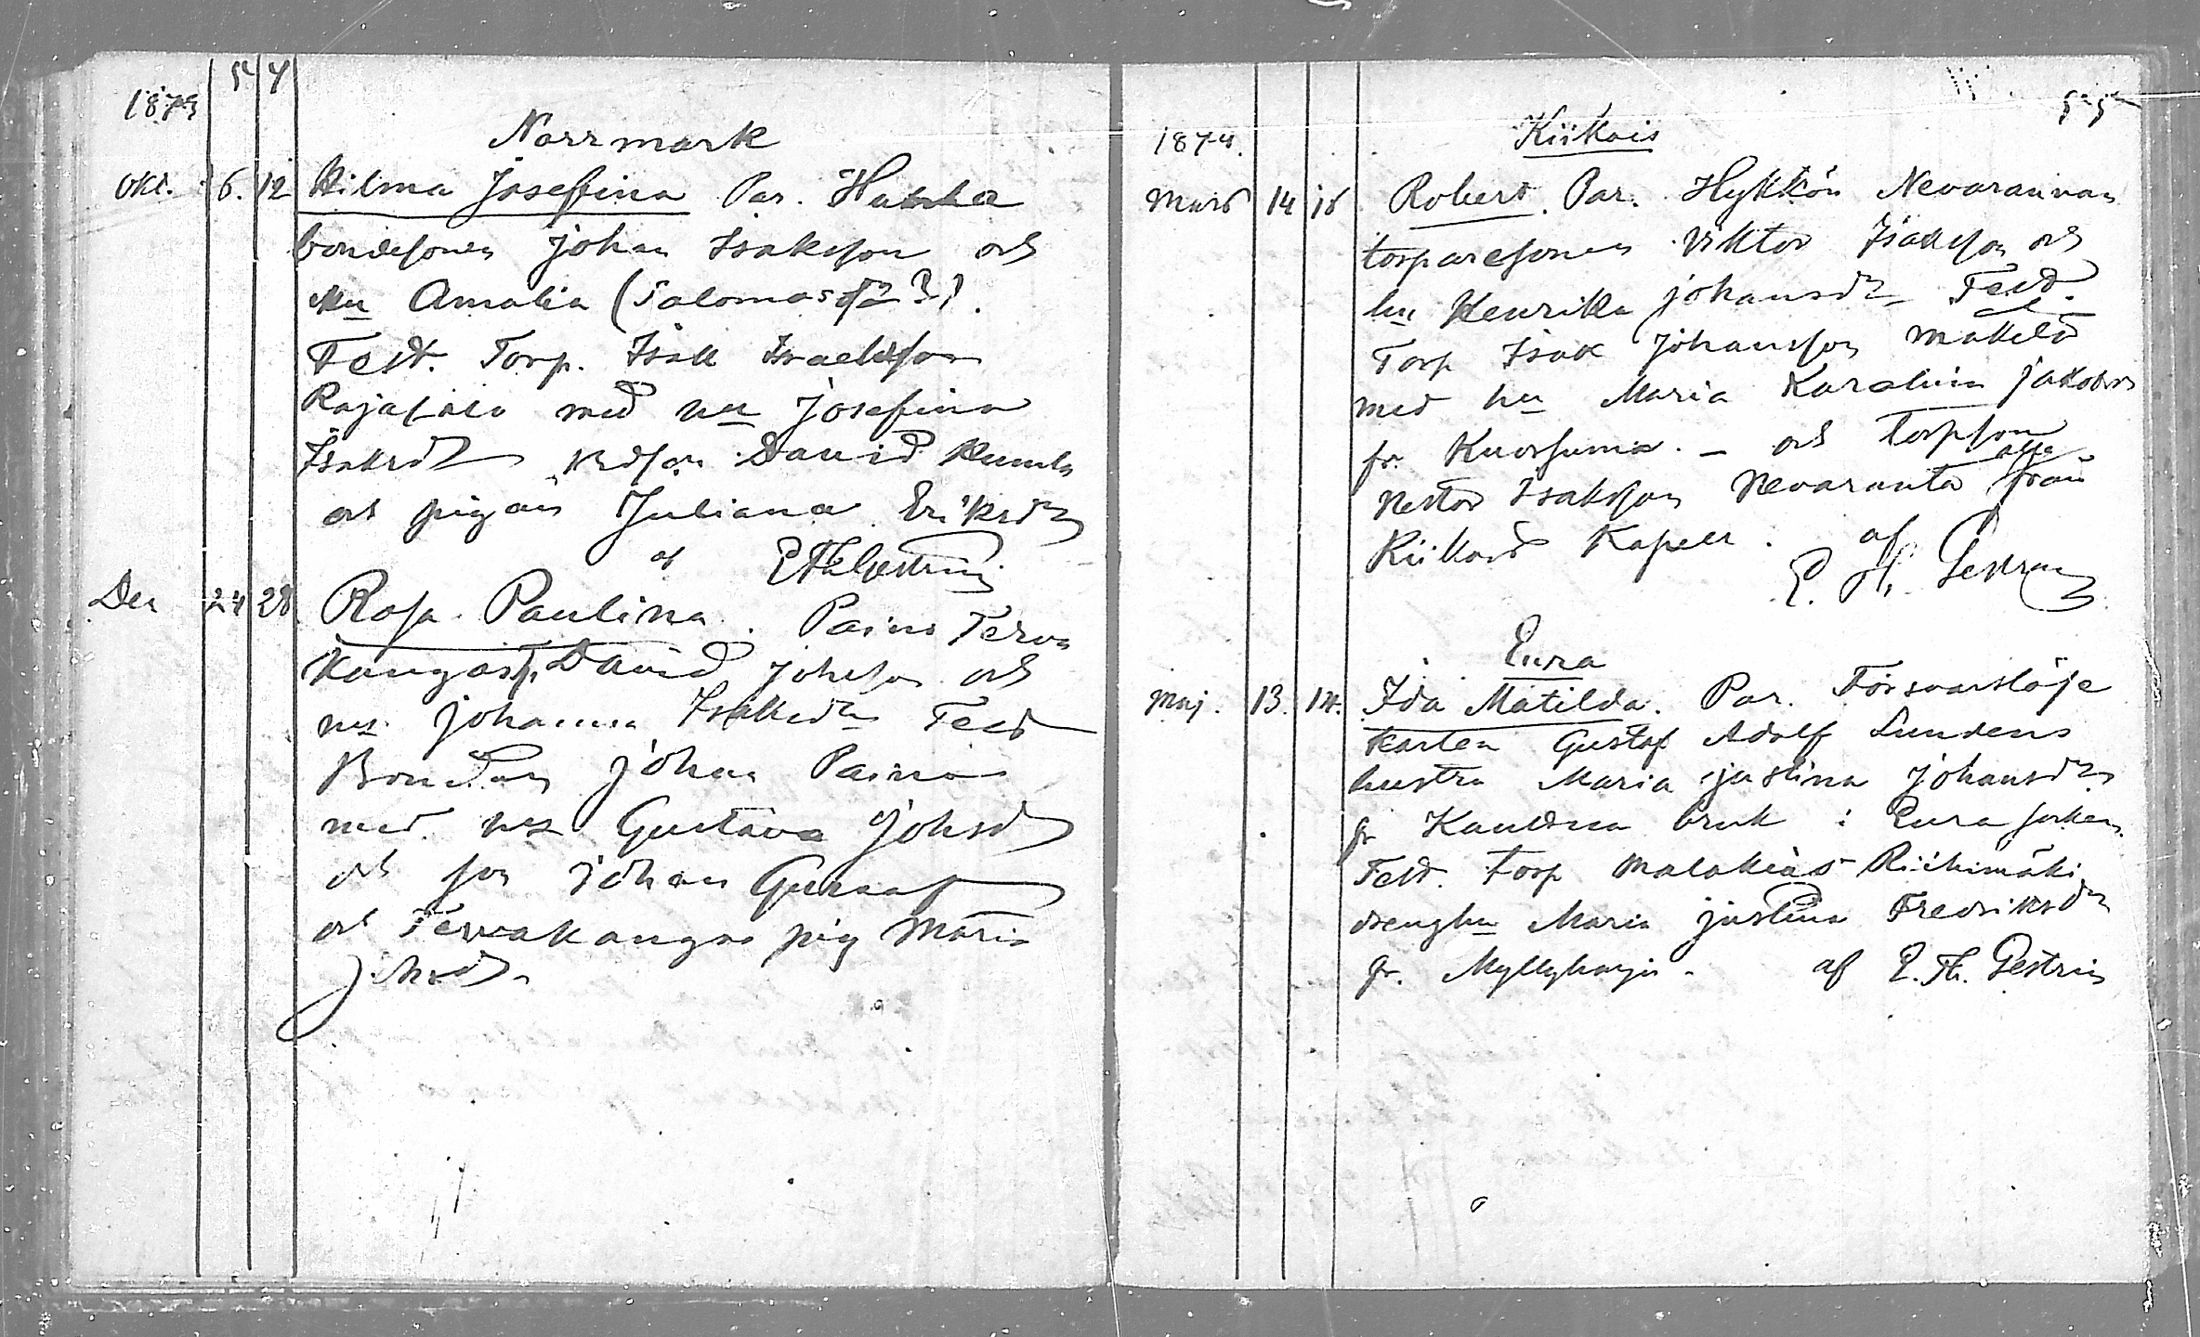 54
1873
Norrmark
Okt. 6. 12 Hilma Josefina Par.
bondesonen Johan Isaksson och
hu Amalia (Salomosdr?).
Test. Torp. Isak Israelsson
Rajasalo med hu Josefina
Isaksdr David
och pigan Juliana Eriksdr
af E Th Gestrin
Dec 24 28 Rosa Paulina. Paino Terva
kangas David Johsson och
hu Johanna Isaksdr Test
Bonden Johan Paino
med hu Gustava Johsdr
och son Johan Gustaf
och Tervakangas pig Maria
Johsdr.
55
1874.
Kiikois
Mars 14 16 Robert. Par. Hykkön Nevarannan
torparesonen Viktor Isaksson och
hu Henrika Johansdr Test.
Torp Isak Johansson Mäkelä
med hu Maria Karolina Jakobsdr
fr. Kuorsuma. - och torpson
Nestor Isaksson Nevaranta alla från
Kiikois Kapell. af
E. Th. Gestrin
Eura
Maj. 13. 14. Ida Matilda. Par. Försvarslöse
karlen Gustaf Adolf Lundens
hustru Maria Justina Johansdr
fr Kauttua bruk i Eura socken.
Test. Torp Malakias Riihimäki
drenghu Maria Justina Fredriksdr
fr. Myllyharju. af E. Th. Gestrin